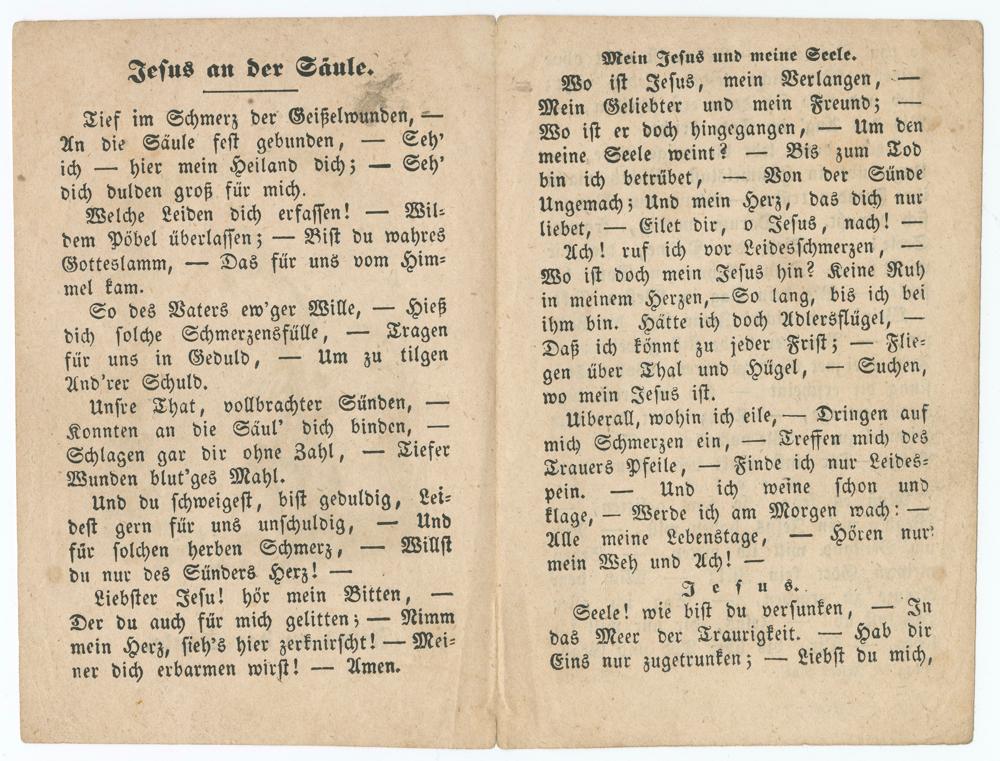 Jesus an der Säule.
Tief im Schmerz der Geißelwunden, —
An die Säule fest gebunden, — Seh'
ich — hier mein Heiland dich; — Seh'
dich dulden groß für mich.
Welche Leiden dich erfassen! — Wil-
dem Pöbel überlassen; — Bist du wahres
Gotteslamm, — Das für uns vom Him-
mel kam.
So des Vaters ew'ger Wille, — Hieß
dich solche Schmerzensfülle, — Tragen
für uns in Geduld, — Um zu tilgen
And'rer Schuld.
Unsre That, vollbrachter Sünden, —
Konnten an die Säul' dich binden, —
Schlagen gar dir ohne Zahl, — Tiefer
Wunden blut'ges Mahl.
Und du schweigest, bist geduldig, Lei-
dest gern für uns unschuldig, — Und
für solchen herben Schmerz, — Willst
du nur des Sünders Herz! —
Liebster Jesu! hör mein Bitten, —
Der du auch für mich gelitten; — Nimm
mein Herz, sieh's hier zerknirscht! — Mei-
ner dich erbarmen wirst! — Amen.
Mein Jesus und meine Seele.
Wo ist Jesus, mein Verlangen, —
Mein Geliebter und mein Freund; —
Wo ist er doch hingegangen, — Um den
meine Seele weint? — Bis zum Tod
bin ich betrübet, — Von der Sünde
Ungemach; Und mein Herz, das dich nur
liebet, — Eilet dir, o Jesus, nach! —
Ach! ruf ich vor Leidesschmerzen, —
Wo ist doch mein Jesus hin? Keine Ruh
in meinem Herzen,—So lang, bis ich bei
ihm bin. Hätte ich doch Adlersflügel, —
Daß ich könnt zu jeder Frist; — Flie-
gen über Thal und Hügel, — Suchen,
wo mein Jesus ist.
Uiberall, wohin ich eile, — Dringen auf
mich Schmerzen ein, — Treffen mich des
Trauers Pfeile, — Finde ich nur Leides-
pein. — Und ich weine schon und
klage, — Werde ich am Morgen wach: —
Alle meine Lebenstage, — Hören nur
mein Weh und Ach! —
Jesus.
Seele! wie bist du versunken, — In
das Meer der Traurigkeit. — Hab dir
Eins nur zugetrunken; — Liebst du mich,